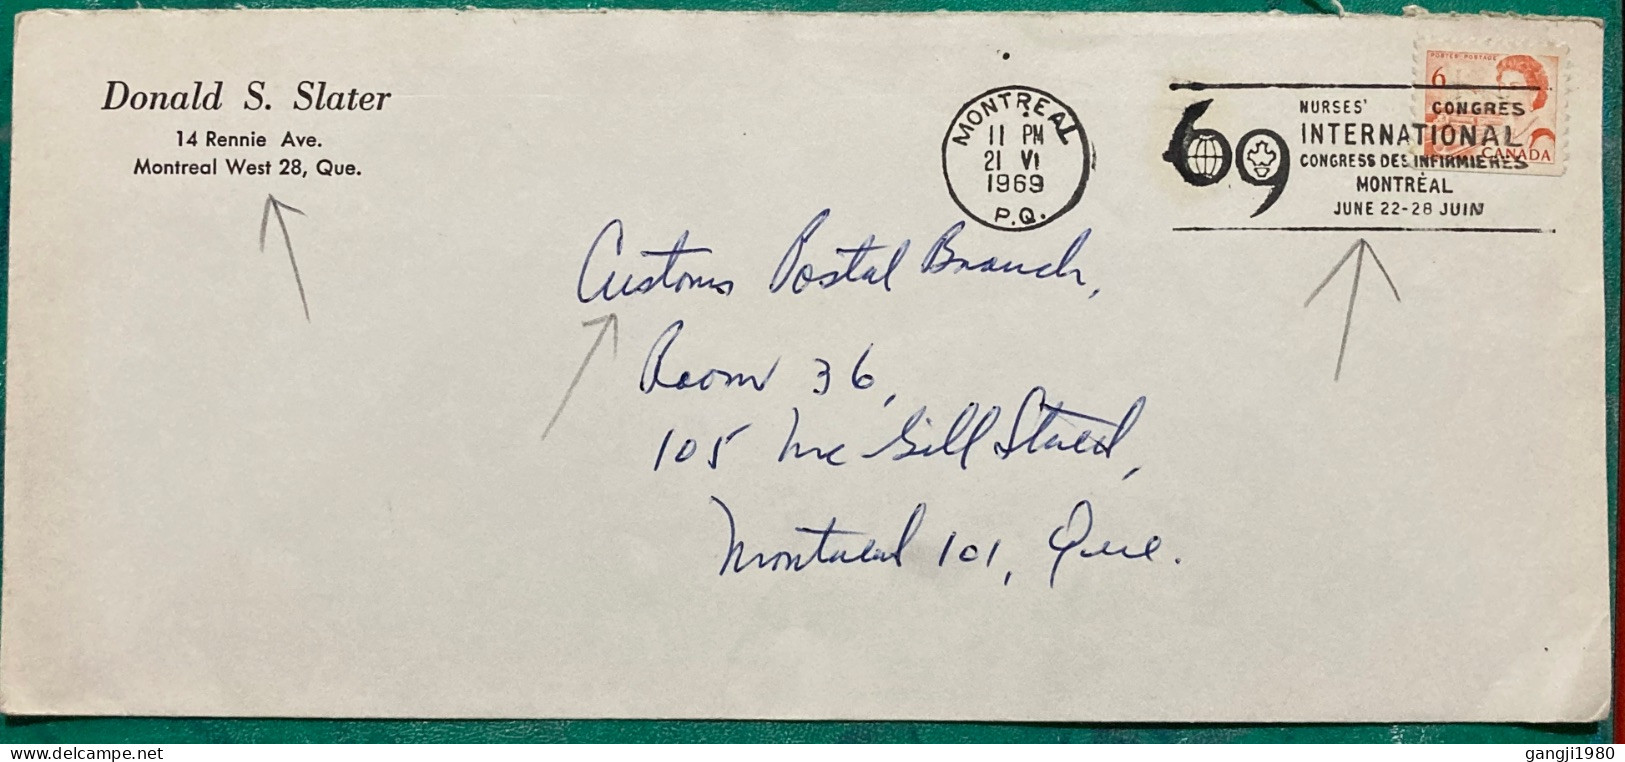 Donald S. Slater
14 Rennie Ave.
Montreal West 28, Que.
MONTREAL
11 PM
21 VI
1969
P.Q.
69
NURSES' CONGRÈS
INTERNATIONAL
CONGRESS DES INFIRMIÈRES
MONTRÉAL
JUNE 22-28 JUIN
POSTES POSTAGE
6
CANADA
Customs Postal Branch,
Room 36,
105 McGill Street,
Montreal 101, Que.
delcampe.net
gangji1980